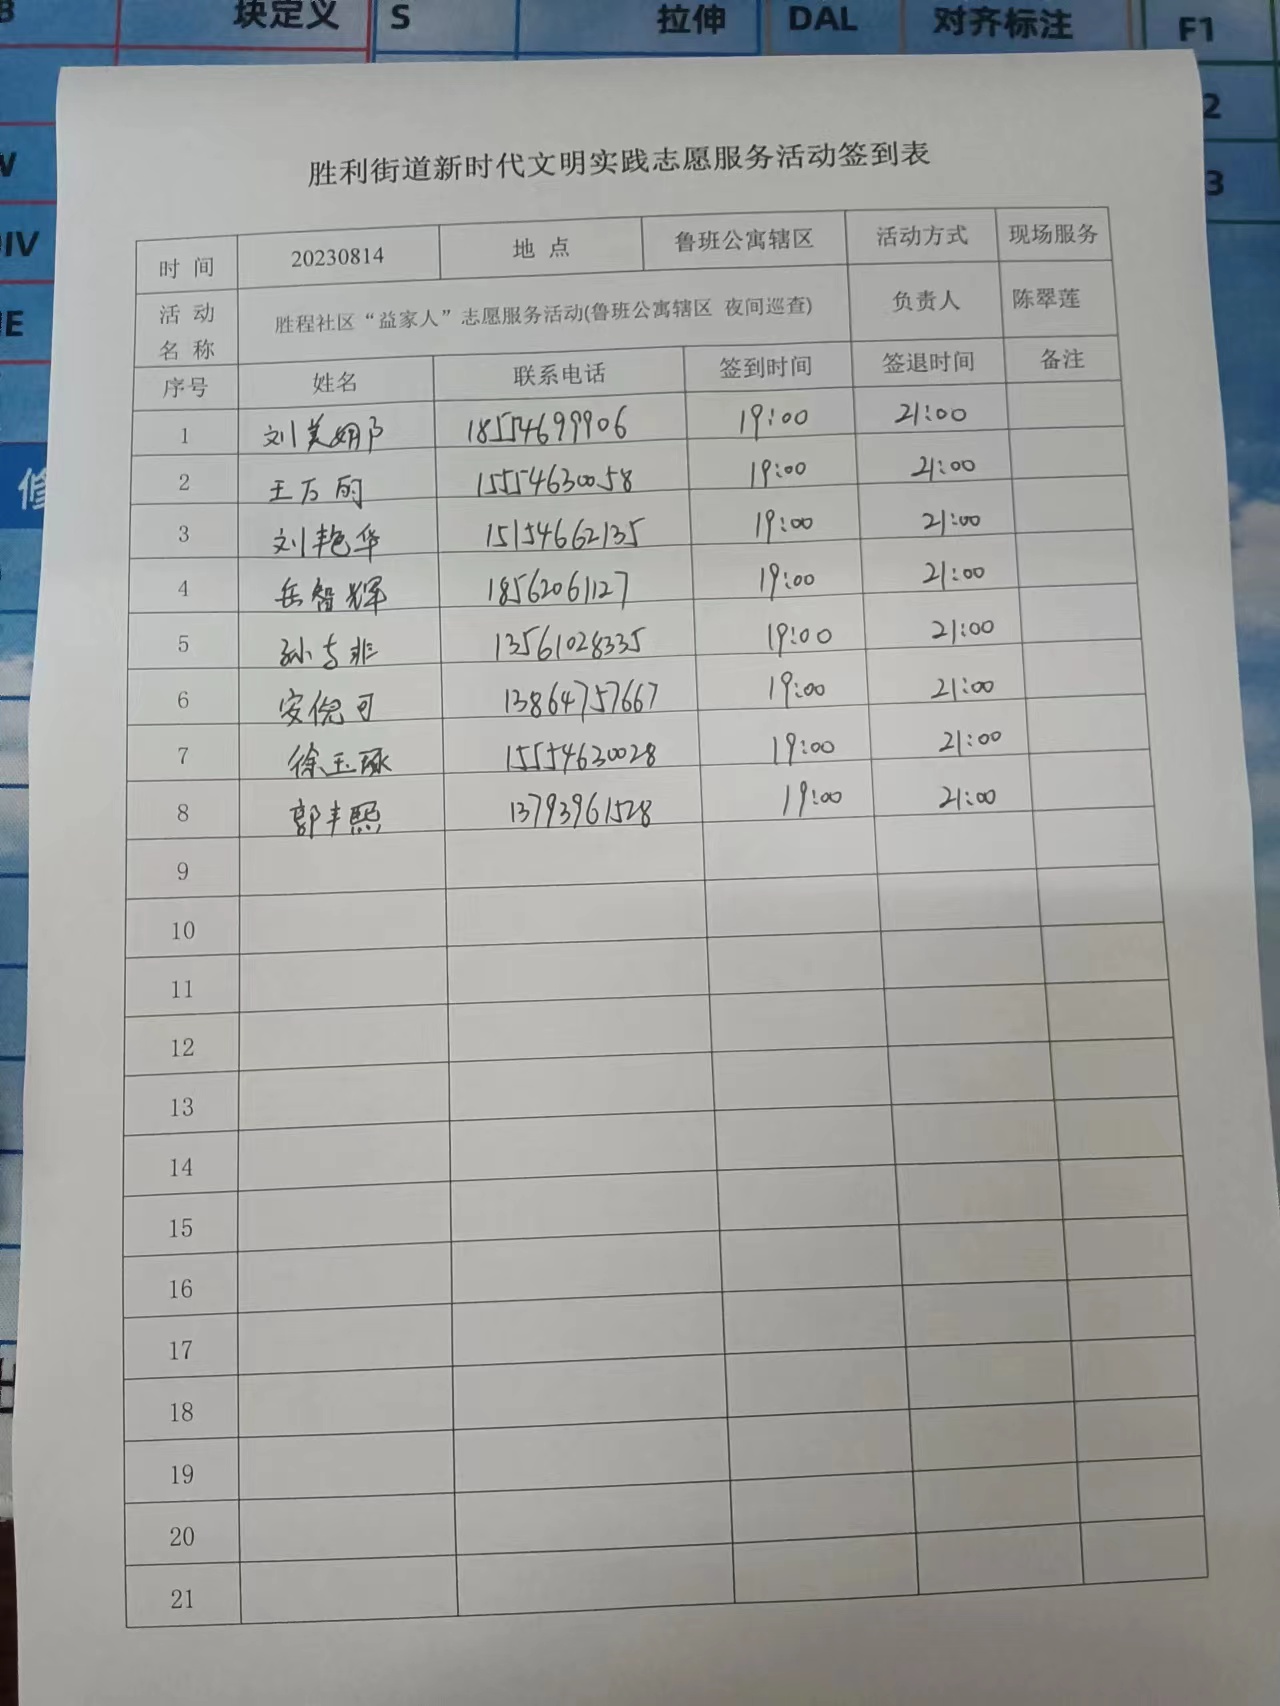 块定义 S 拉伸 DAL 对齐标注 F1
2
3
IV
E
修
胜利街道新时代文明实践志愿服务活动签到表
时 间 20230814 地 点 鲁班公寓辖区 活动方式 现场服务
活 动 名 称 胜程社区“益家人”志愿服务活动(鲁班公寓辖区 夜间巡查) 负责人 陈翠莲
序号 姓名 联系电话 签到时间 签退时间 备注
1 刘美 18554699906 19:00 21:00
2 王万丽 15554630058 19:00 21:00
3 刘艳华 15154662135 19:00 21:00
4 岳智辉 18562061127 19:00 21:00
5 孙与非 13561028335 19:00 21:00
6 安倪可 13864757667 19:00 21:00
7 徐玉琢 15554630028 19:00 21:00
8 郭丰熙 13793961528 19:00 21:00
9
10
11
12
13
14
15
16
17
18
19
20
21